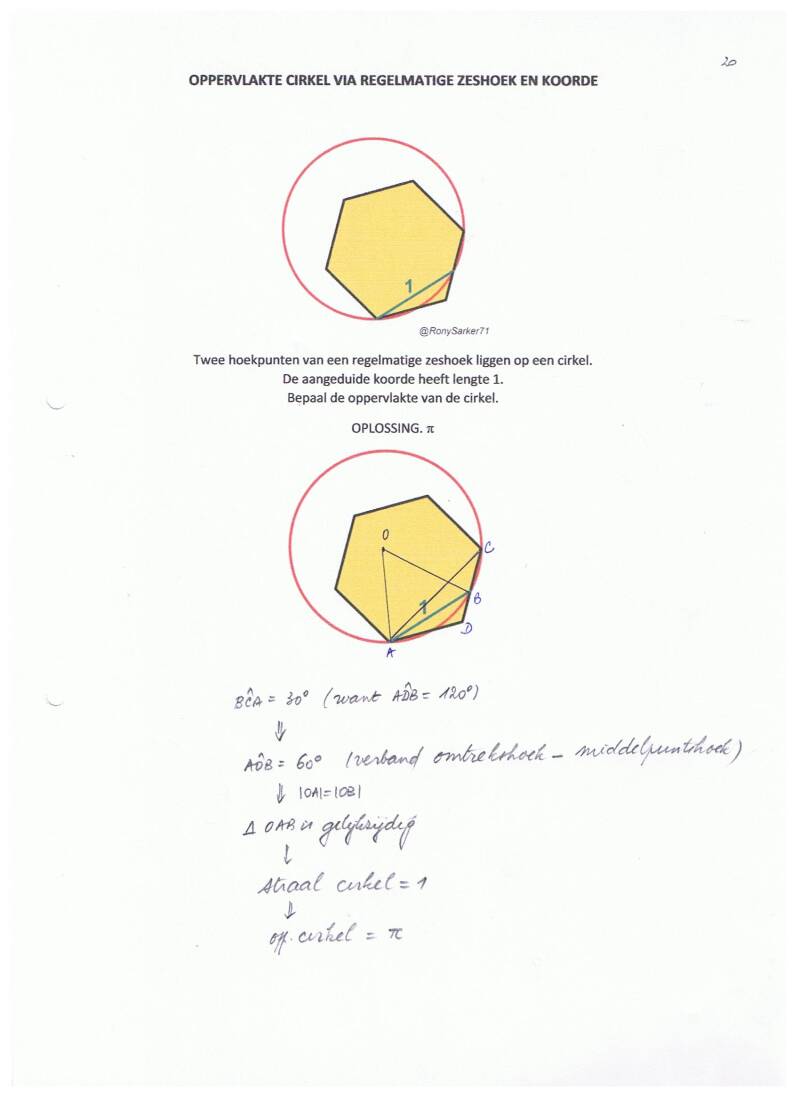 20
OPPERVLAKTE CIRKEL VIA REGELMATIGE ZESHOEK EN KOORDE
1
@RonySarker71
Twee hoekpunten van een regelmatige zeshoek liggen op een cirkel.
De aangeduide koorde heeft lengte 1.
Bepaal de oppervlakte van de cirkel.
OPLOSSING. π
O
C
1
B
D
A
BĈA = 30° (want AD̂B = 120°)
⇓
AÔB = 60° (verband omtrekshoek – middelpuntshoek)
⇓ |OA|=|OB|
Δ OAB is gelijkzijdig
⇓
straal cirkel = 1
⇓
opp. cirkel = π